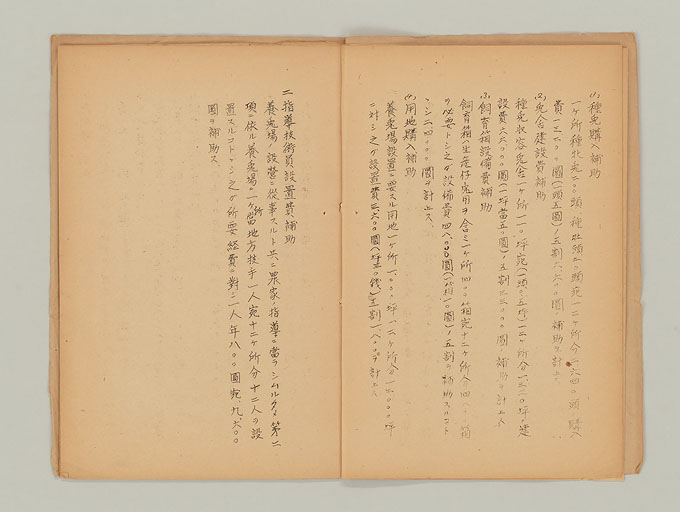 (1) 種兎購入補助
一ヶ所種牝兎二〇〇頭 種牡頭二〇頭宛一二ヶ所分二六四〇頭購入
費一三二〇〇圓(一頭五圓)ノ五割六六〇〇圓ヲ補助ヲ計上ス
(2) 兎舎建設費補助
種兎収容兎舎一ヶ所一一〇坪宛(一頭〇.五坪)一二ヶ所分一三二〇坪ノ建
設費六六〇〇〇圓(一坪當五〇圓)ノ五割三三〇〇〇圓ノ補助ヲ計上ス
飼育箱設備費補助
飼育箱(生産仔兎用ヲ含ミ一ヶ所四〇〇箱宛十二ヶ所分四八〇〇箱
ヲ必要トシ之ガ設備費四八〇〇〇圓(一箱一〇圓)ノ五割ヲ補助スルコト
シ二四〇〇〇圓ヲ計上ス
用地購入補助
養兎場設置ニ要スル用地一ヶ所一〇〇〇坪一二ヶ所分一二〇〇〇坪
ニ対シ之ガ設置費三六〇〇圓(坪三〇銭)五割一八〇〇ヲ計上ス
二 指導技術員設置費補助
養兎場ノ設営ニ從事スルト共ニ農家ノ指導ニ當ラシムルタメ第二
項ニ依ル養兎場一ヶ所當地方技手一人宛十二ヶ所分十二人ヲ設
置スルコトヽシ之ガ所要経費ニ對シ一人年八〇〇圓宛九、六〇〇
圓ヲ補助ス